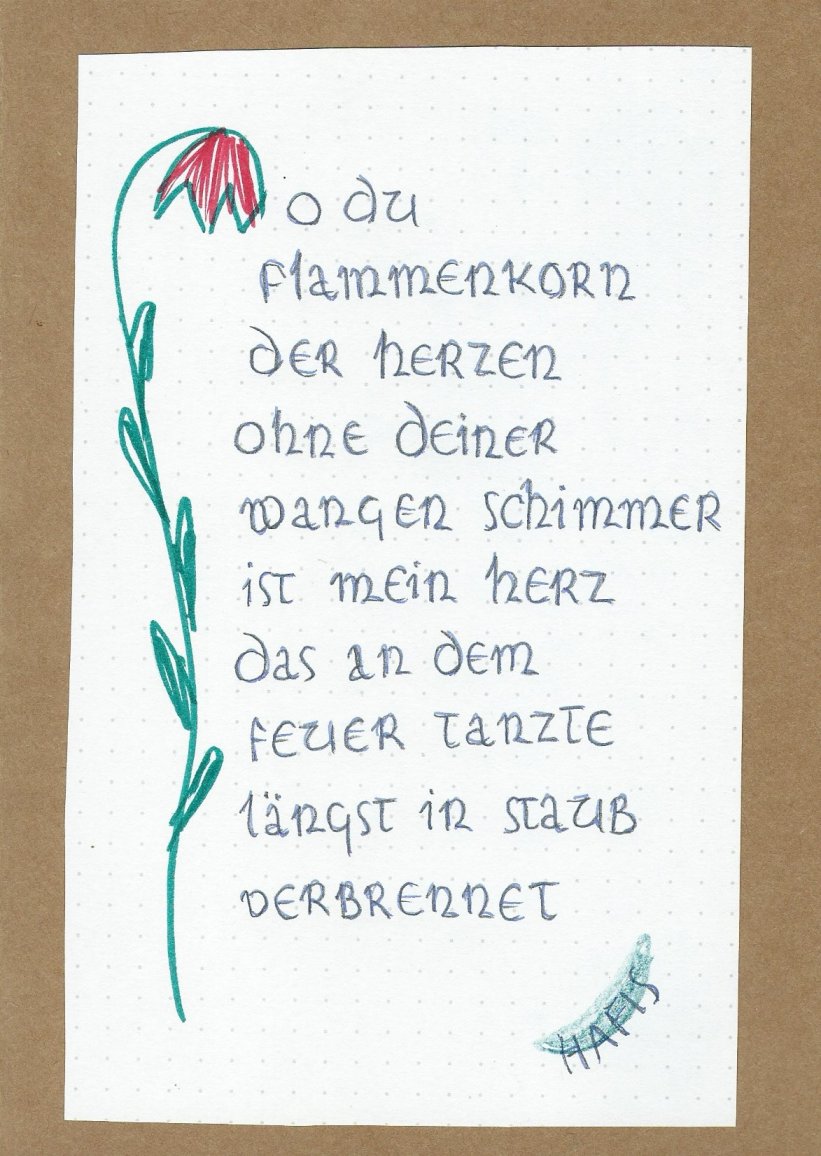 o du
flammenkorn
der herzen
ohne deiner
wangen schimmer
ist mein herz
das an dem
feuer tanzte
längst in staub
verbrennet
HAFIS